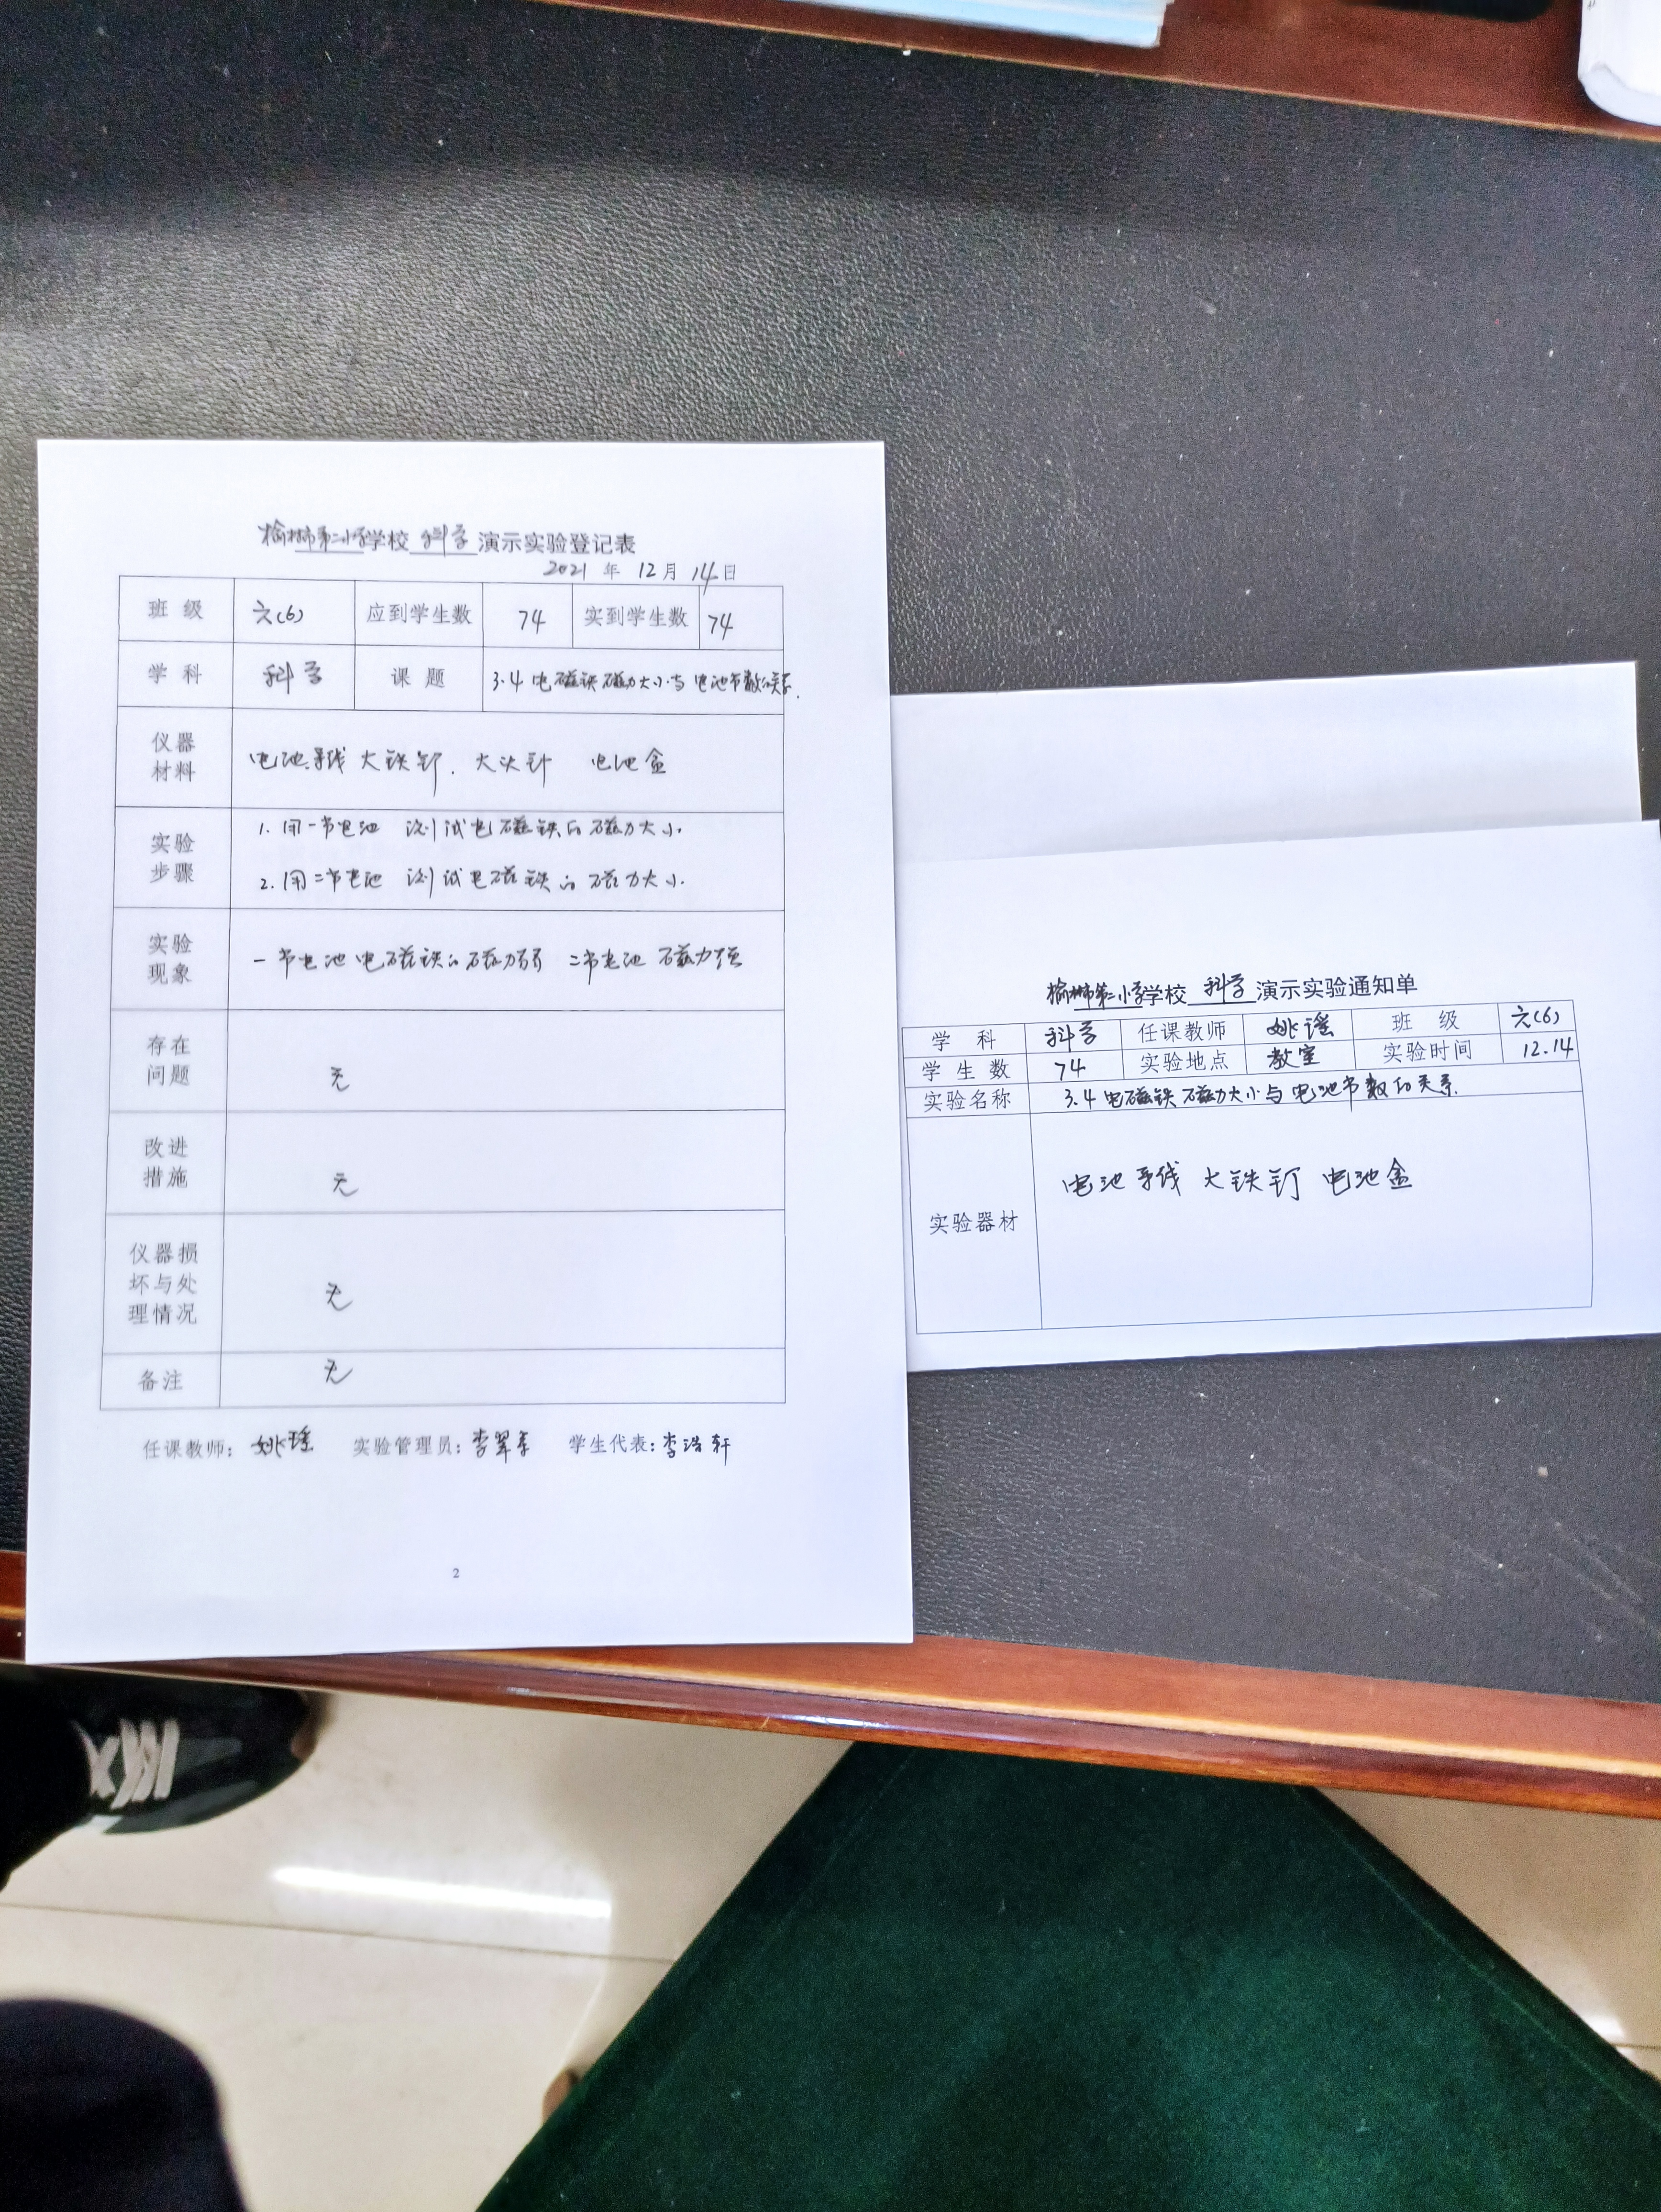 榆林市第二小学学校 科学 演示实验登记表
2021 年 12 月 14 日
班 级 六(6) 应到学生数 74 实到学生数 74
学 科 科学 课 题 3.4 电磁铁磁力大小与电池节数的关系.
仪器材料 电池 导线 大铁钉. 大头针 电池盒
实验步骤 1. 用一节电池 测试电磁铁的磁力大小.
2. 用二节电池 测试电磁铁的磁力大小.
实验现象 一节电池 电磁铁的磁力弱 二节电池 磁力强
存在问题 无
改进措施 无
仪器损坏与处理情况 无
备注 无
任课教师: 姚瑶 实验管理员: 李 学生代表: 李浩轩
2
榆林市第二小学学校 科学 演示实验通知单
学 科 科学 任课教师 姚瑶 班 级 六(6)
学 生 数 74 实验地点 教室 实验时间 12.14
实验名称 3.4 电磁铁磁力大小与电池节数的关系.
实验器材 电池 导线 大铁钉 电池盒